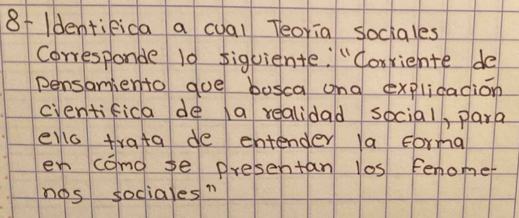 8- Identifica a cual Teoría sociales
Corresponde lo siguiente: "Corriente de
pensamiento que busca una explicación
cientifica de la realidad social, para
ello trata de entender la forma
en cómo se presentan los fenome-
nos sociales"